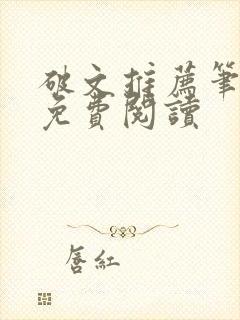 破文推薦筆
免費閱讀
唇紅